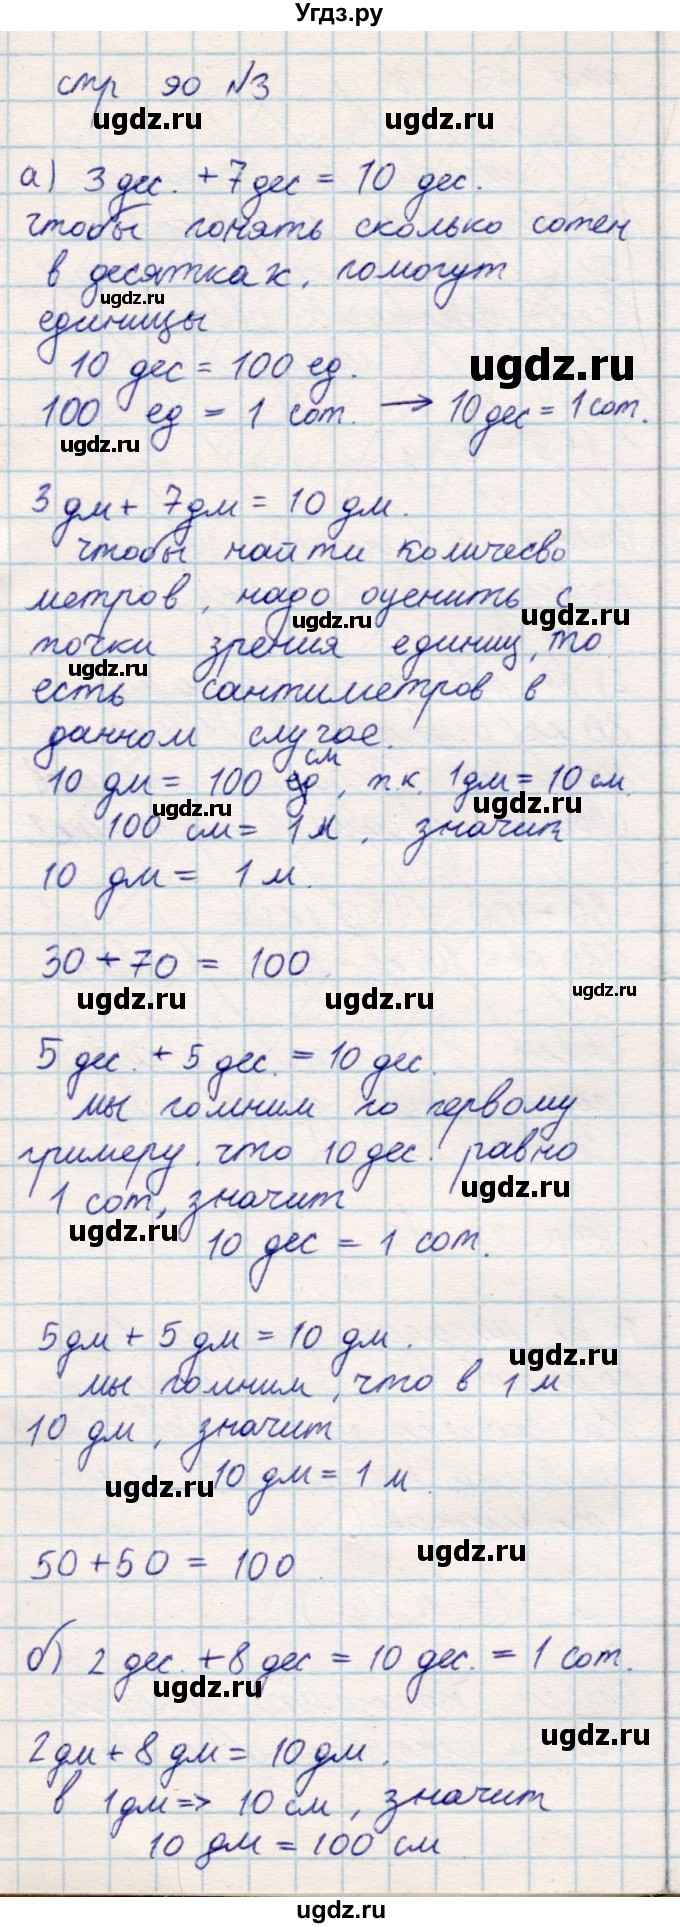 Угдз.ру
стр 90 №3
ugdz.ru ugdz.ru
а) 3 дес. + 7 дес = 10 дес.
чтобы понять сколько сотен
в десятках, помогут
ugdz.ru
единицы
10 дес = 100 ед.
ugdz.ru
100 ед = 1 сот. → 10 дес = 1 сот.
ugdz.ru
3 дм + 7 дм = 10 дм.
чтобы найти количесво
метров, надо оценить с
ugdz.ru ugdz.ru
точки зрения единиц, то
ugdz.ru
есть сантиметров в
данном случае.
10 дм = 100 см, т.к. 1 дм = 10 см.
ugdz.ru ugdz.ru
100 см = 1 м, значит
10 дм = 1 м.
30 + 70 = 100.
ugdz.ru ugdz.ru ugdz.ru
5 дес. + 5 дес. = 10 дес.
мы помним по первому
примеру, что 10 дес. равно
ugdz.ru
1 сот, значит
ugdz.ru
10 дес = 1 сот.
5 дм + 5 дм = 10 дм.
ugdz.ru
мы помним, что в 1 м
10 дм, значит
10 дм = 1 м
ugdz.ru
50 + 50 = 100.
ugdz.ru
б) 2 дес. + 8 дес = 10 дес. = 1 сот.
ugdz.ru
2 дм + 8 дм = 10 дм.
ugdz.ru
в 1 дм => 10 см, значит
10 дм = 100 см
ugdz.ru